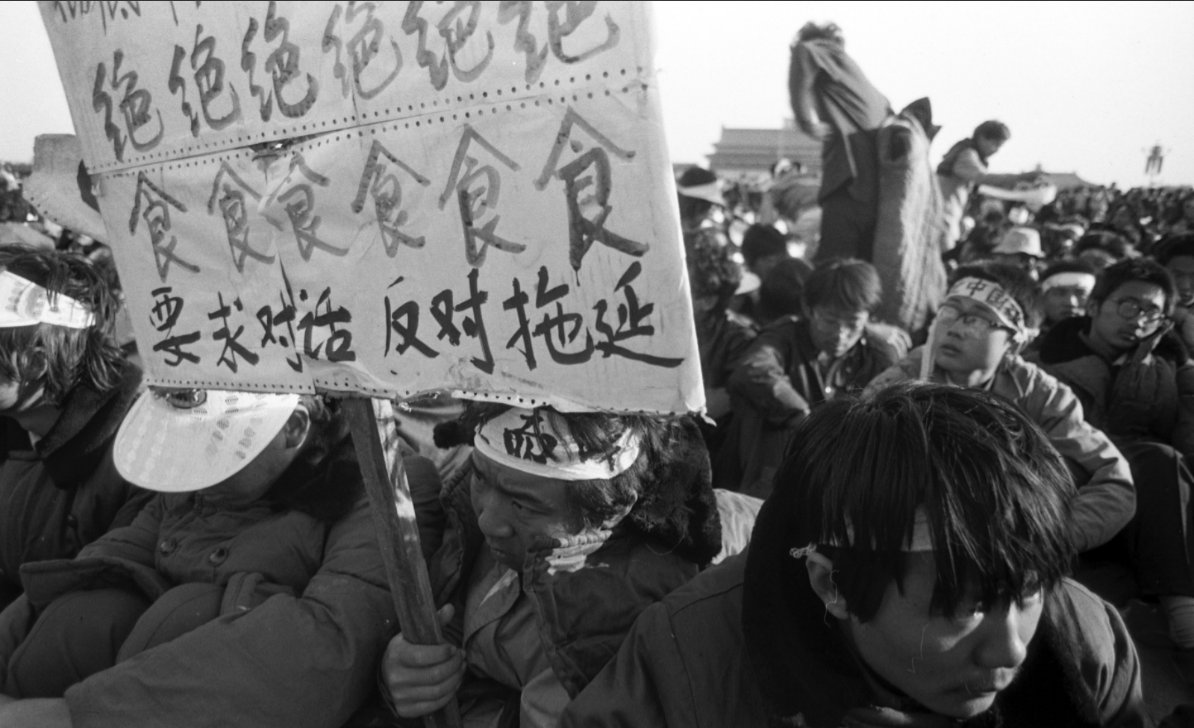 绝绝绝绝绝绝
食食食食食食
要求对话 反对拖延
中国